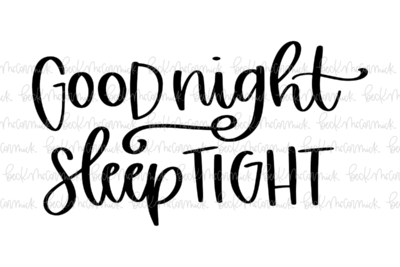 GOOD night
sleep TIGHT